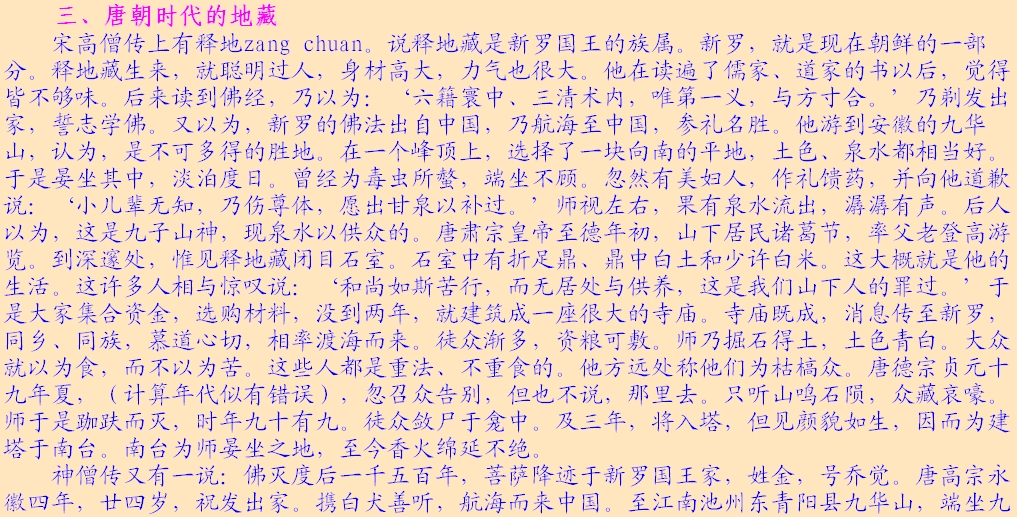 三、唐朝时代的地藏
宋高僧传上有释地zang chuan。说释地藏是新罗国王的族属。新罗，就是现在朝鲜的一部
分。释地藏生来，就聪明过人，身材高大，力气也很大。他在读遍了儒家、道家的书以后，觉得
皆不够味。后来读到佛经，乃以为：‘六籍寰中、三清术内，唯第一义，与方寸合。’乃剃发出
家，誓志学佛。又以为，新罗的佛法出自中国，乃航海至中国，参礼名胜。他游到安徽的九华
山，认为，是不可多得的胜地。在一个峰顶上，选择了一块向南的平地，土色、泉水都相当好。
于是晏坐其中，淡泊度日。曾经为毒虫所螫，端坐不顾。忽然有美妇人，作礼馈药，并向他道歉
说：‘小儿辈无知，乃伤尊体，愿出甘泉以补过。’师视左右，果有泉水流出，潺潺有声。后人
以为，这是九子山神，现泉水以供众的。唐肃宗皇帝至德年初，山下居民诸葛节，率父老登高游
览。到深邃处，惟见释地藏闭目石室。石室中有折足鼎、鼎中白土和少许白米。这大概就是他的
生活。这许多人相与惊叹说：‘和尚如斯苦行，而无居处与供养，这是我们山下人的罪过。’于
是大家集合资金，选购材料，没到两年，就建筑成一座很大的寺庙。寺庙既成，消息传至新罗，
同乡、同族，慕道心切，相率渡海而来。徒众渐多，资粮可敷。师乃掘石得土，土色青白。大众
就以为食，而不以为苦。这些人都是重法、不重食的。他方远处称他们为枯槁众。唐德宗贞元十
九年夏，（计算年代似有错误），忽召众告别，但也不说，那里去。只听山鸣石陨，众藏哀嚎。
师于是跏趺而灭，时年九十有九。徒众敛尸于龛中。及三年，将入塔，但见颜貌如生，因而为建
塔于南台。南台为师晏坐之地，至今香火绵延不绝。
神僧传又有一说：佛灭度后一千五百年，菩萨降迹于新罗国王家，姓金，号乔觉。唐高宗永
徽四年，廿四岁，祝发出家。携白犬善听，航海而来中国。至江南池州东青阳县九华山，端坐九